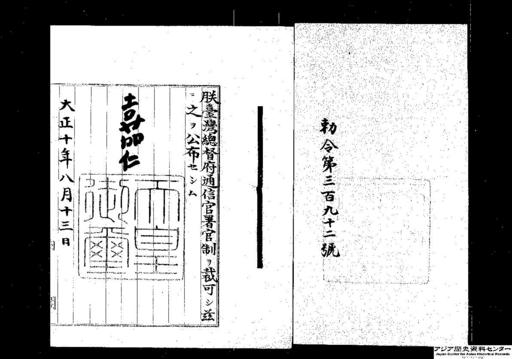 勅令第三百九十二號
朕臺灣總督府通信官署官制ヲ裁可シ茲
ニ之ヲ公布セシム
嘉仁
天皇御璽
大正十年八月十三日
アジア歴史資料センター
Japan Center for Asian Historical Records